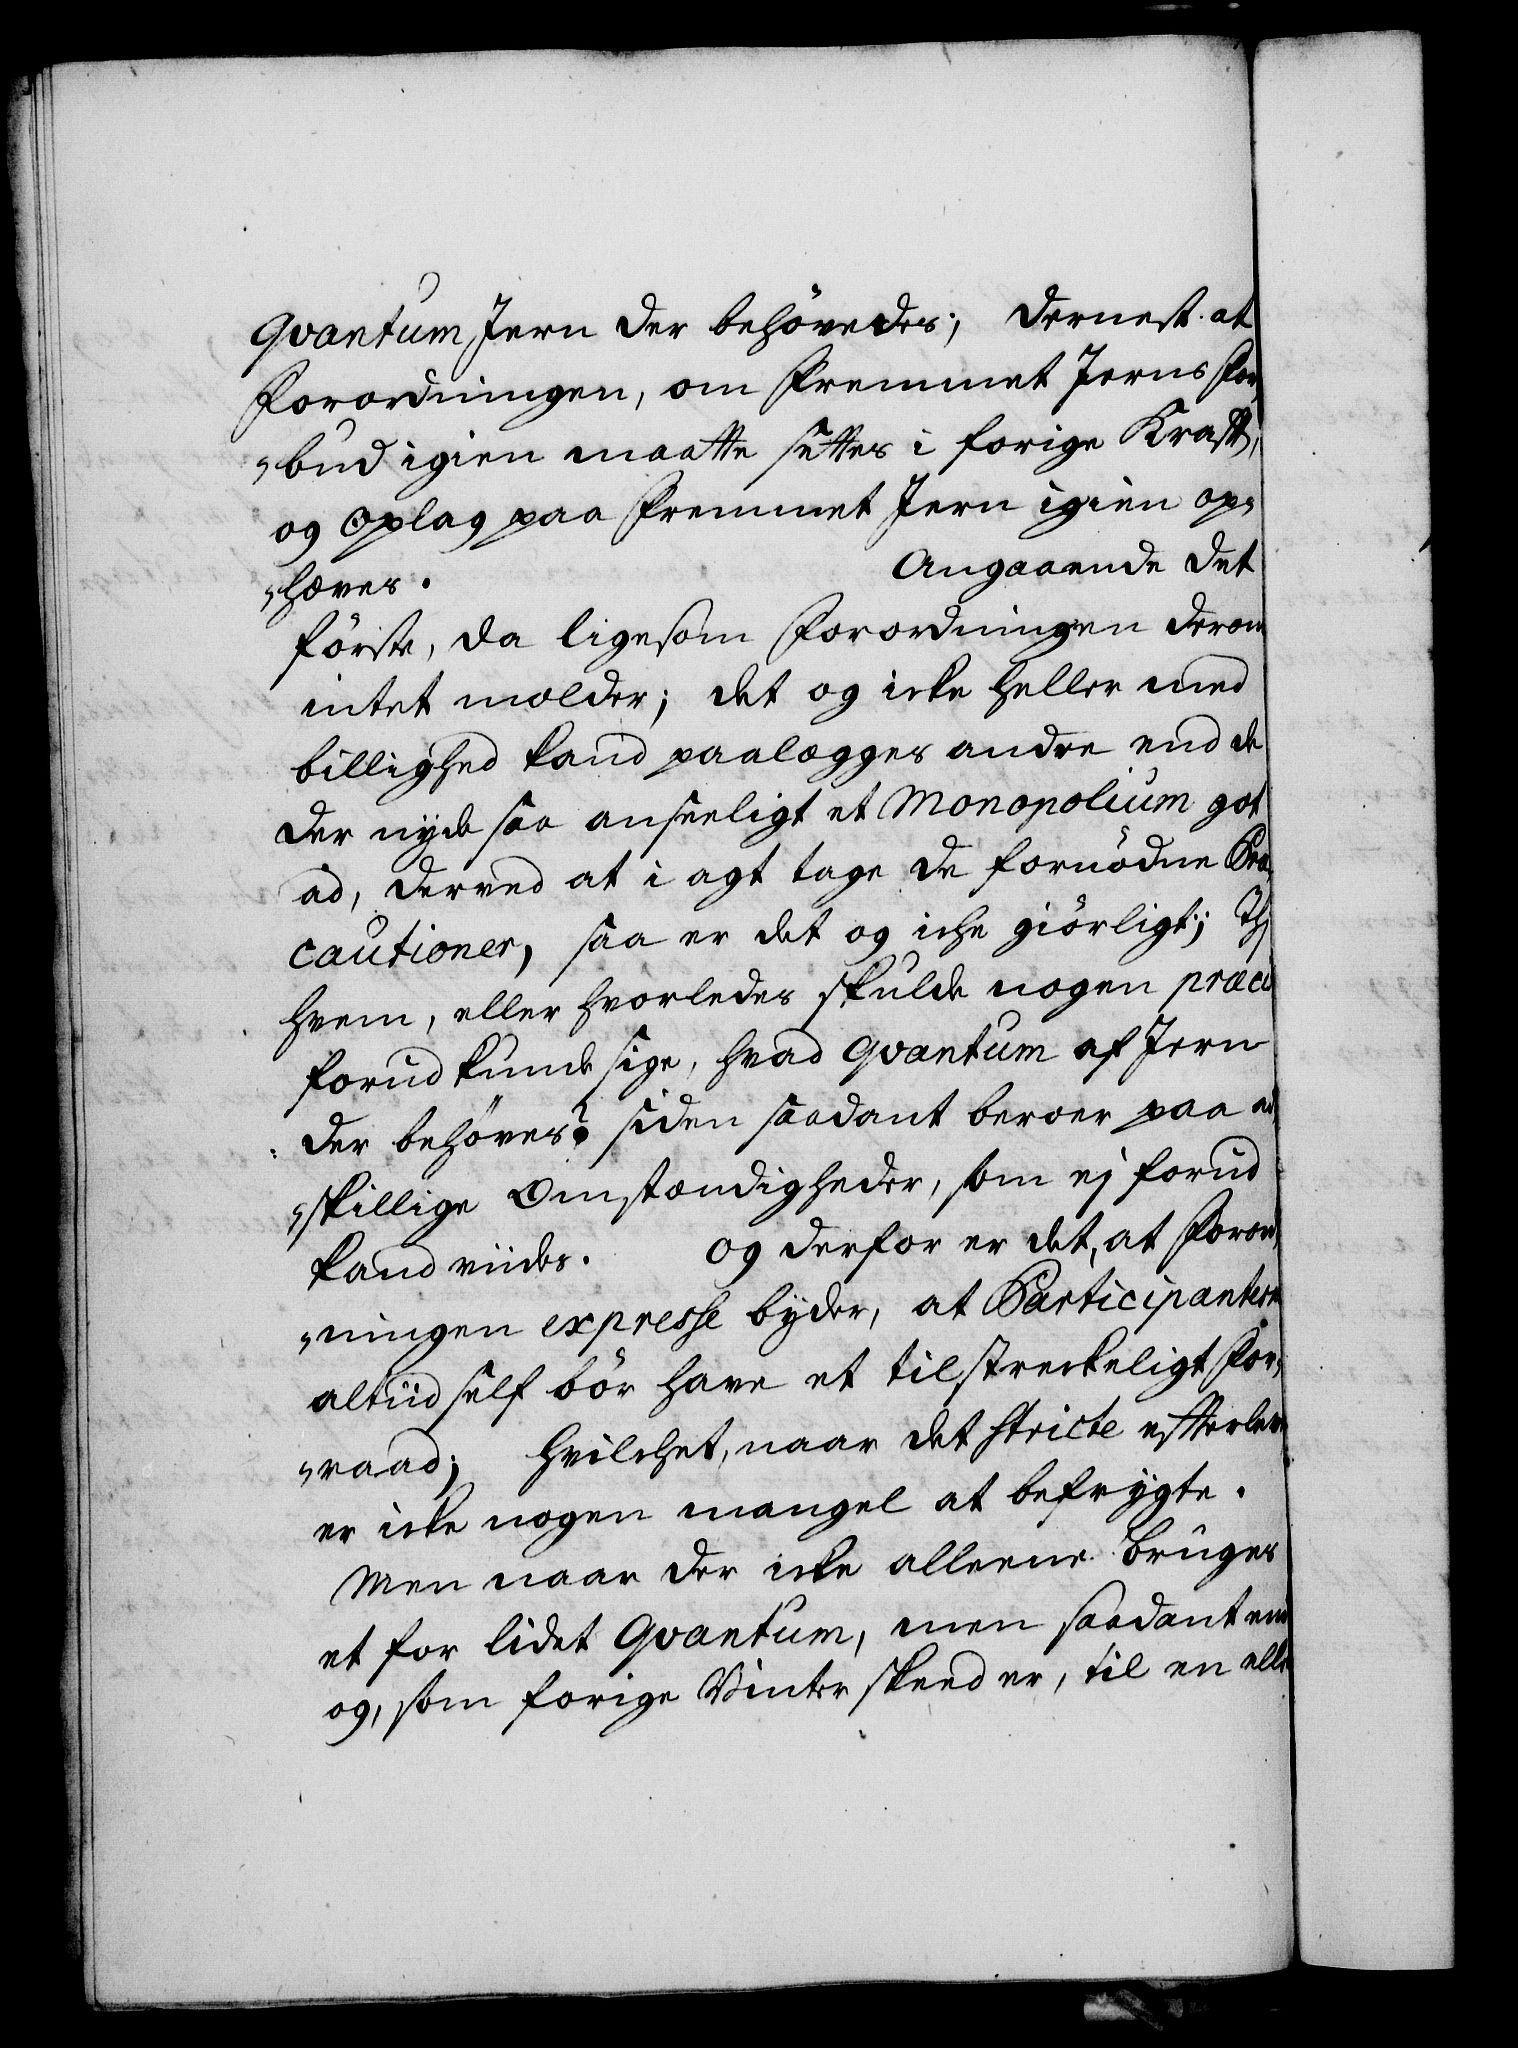 Qvantum Jern der behövedes; dernest at
Forordningen, om Fremmet Jerns For¬
„bud igien maatte settes i forige Krafft,
og Oplag paa Fremmet Jern igien op¬
„hæves. Angaaende det
förste, da ligesom Forordningen derom
intet melder; det og icke heller med
billighed kand paalægges andre end de
der nyde saa anseeligt et Monopolium got
ad, derved at i agt tage de fornödne Præ
cautioner, saa er det og iche giörligt; Thj
hvem, eller hvorledes skulde nogen præcis
forud kunde sige, hvad Qvantum af Jern
der behöves? siden saadant beroer paa ad
„skillige Omstændigheder, som ej forud
kand viides. Og derfor er det, at Forord
„ningen expresse byder, at Participanterne
altiid self bör have et tilstreckeligt For¬
„raad; hvilchet, naar det stricte efterleves
er icke nogen mangel at befrygte.
Men naar der icke alleene bruges
et for lidet Qvantum, men saadant end
og, som forige Vinter skeed er, til en eller